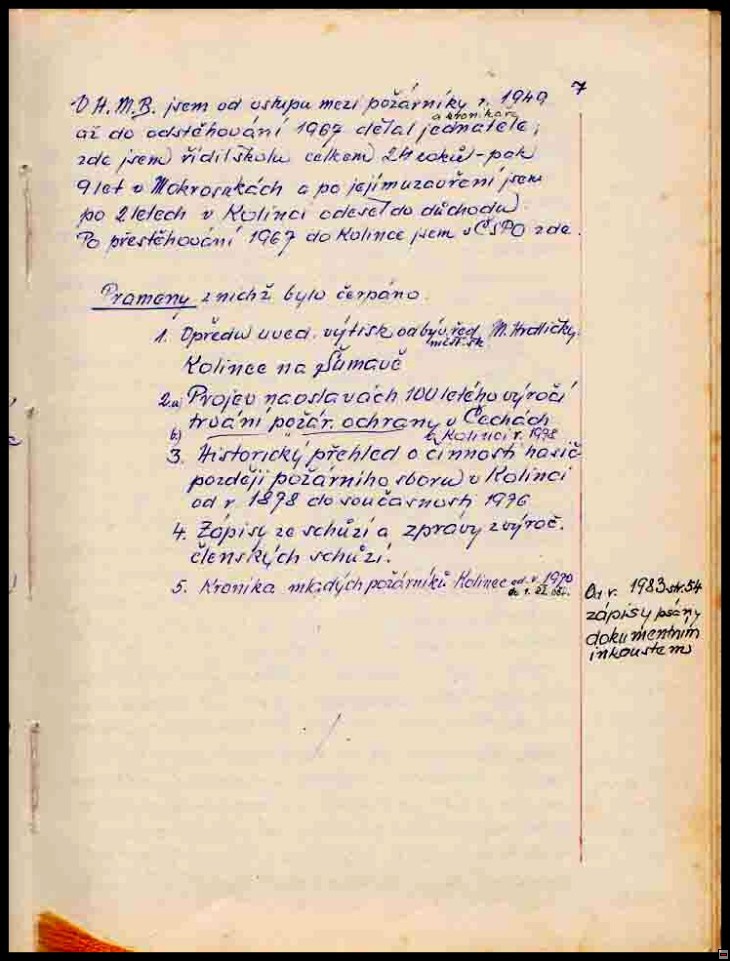 7
V H.M.B. jsem od vstupu mezi požárníky r. 1949
a kronikáře
až do odstěhování 1967 dělal jednatele;
zde jsem řídil školu celkem 24 roků - pak
9 let v Mokrosukách a po jejím uzavření jsem
po 2 letech v Kolinci odešel do důchodu
Po přestěhování 1967 do Kolince jsem v ČSPO zde.
Prameny z nichž bylo čerpáno.
1. Vpředu uved. výtisk od býv. řed. M. Hrdličky.
měst. šk
Kolinec na Šumavě
2. a) Projev na oslavách 100 letého výročí
trvání požár. ochrany v Čechách
b) " v Kolinci r. 1978
3. Historický přehled o činnosti hasič
později požárního sboru v Kolinci
od r. 1878 do současnosti 1976
4. Zápisy ze schůzí a zprávy z výroč.
členských schůzí.
5. Kronika mladých požárníků Kolinec od r. 1970
Od r. 1983 str. 54
zápisy psány
dokumentním
inkoustem